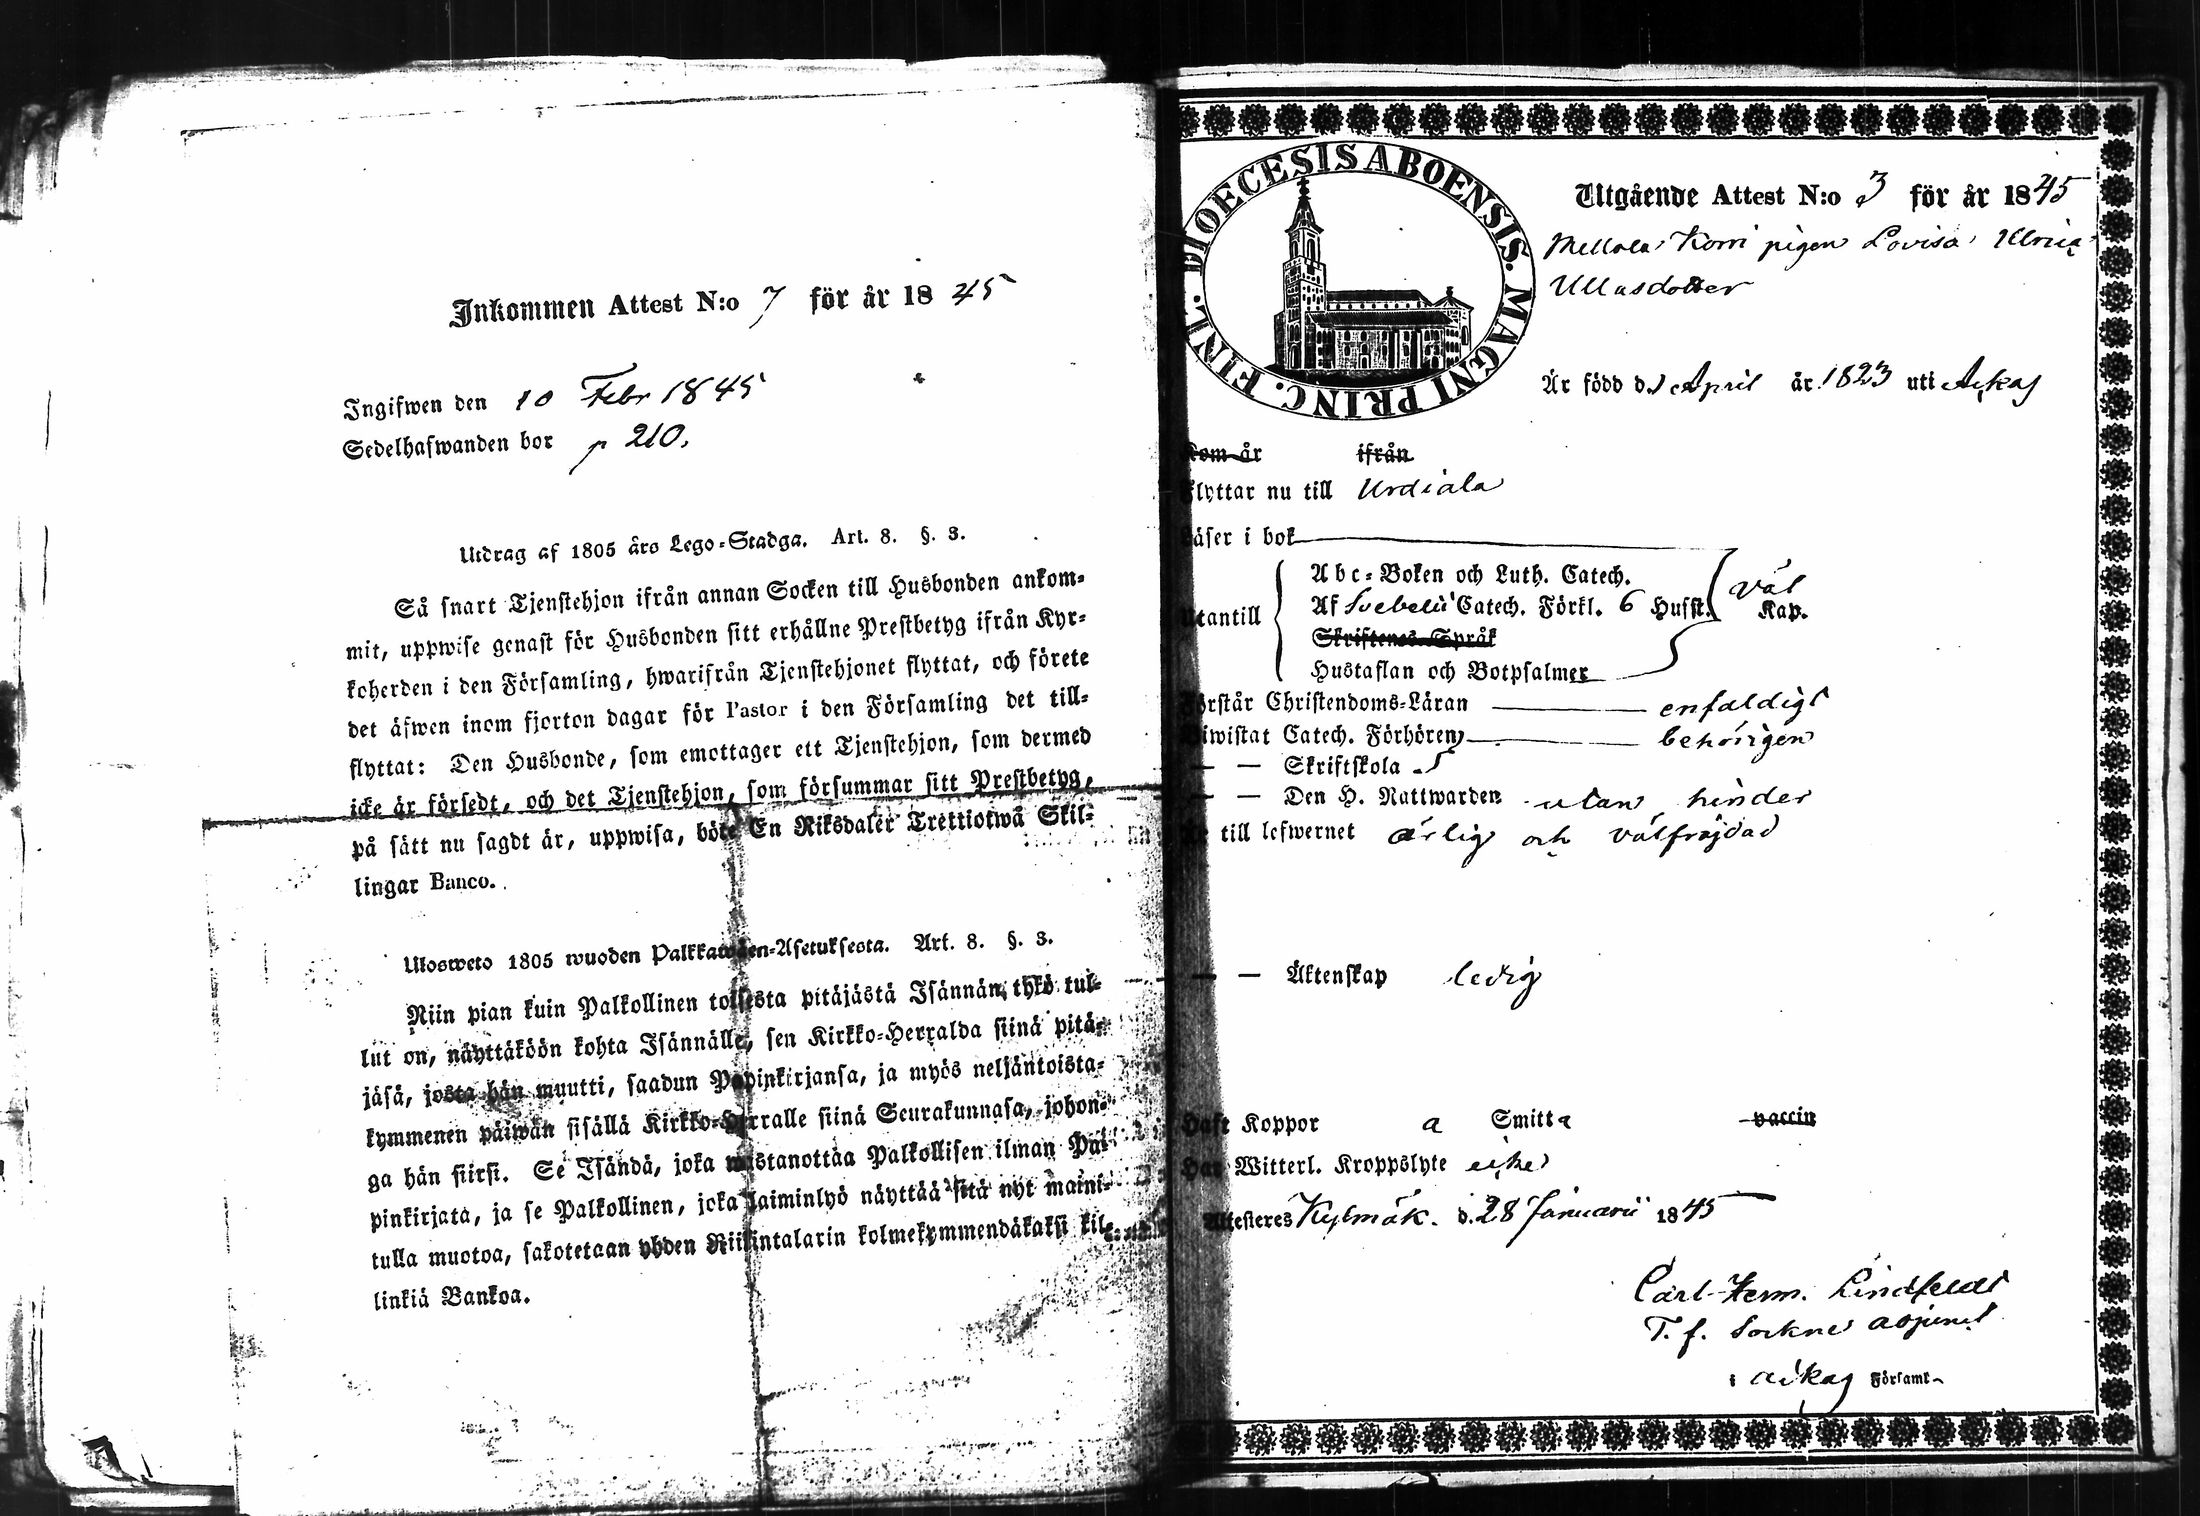 Inkommen Attest N:o 7 för år 1845
Ingifwen den 10 Febr 1845
Sedelhafwanden bor p 210.
Utdrag af 1805 års Lego-Stadga. Art. 8. §. 3.
Så snart Tjenstehjon ifrån annan Socken till Husbonden ankom-
mit, uppwise genast för Husbonden sitt erhållne Prestbetyg ifrån Kyr-
koherden i den Församling, hwarifrån Tjenstehjonet flyttat, och förete
det äfwen inom fjorton dagar för Pastor i den Församling det till-
flyttat: Den Husbonde, som emottager ett Tjenstehjon, som dermed
icke är försedt, och det Tjenstehjon, som försummar sitt Prestbetyg,
på sätt nu sagdt är, uppwisa, böte En Riksdaler Trettiotwå Skil-
lingar Banco.
Ulosweto 1805 wuoden Palkkawäen-Asetuksesta. Art. 8. §. 3.
Niin pian kuin Palkollinen toisesta pitäjästä Isännän tykö tul-
lut on, näyttäköön kohta Isännälle, sen Kirkko-Herralda siinä pitä-
jäsä, josta hän muutti, saadun Papinkirjansa, ja myös neljäntoista-
kymmenen päiwän sisällä Kirkko-Herralle siinä Seurakunnasa, johon-
ga hän siirsi. Se Isändä, joka wastanottaa Palkollisen ilman Pa-
pinkirjata, ja se Palkollinen, joka laiminlyö näyttää sitä nyt maini-
tulla muotoa, sakotetaan yhden Riikintalarin kolmekymmendäkaksi kil-
linkiä Bankoa.
DIOECESIS ABOENSIS. MAGNI PRINC. FINL.
Utgående Attest N:o 3 för år 1845
Mellola Korri pigan Lovisa Ulrica
Ullasdotter
Är född d. 1 April år 1823 uti Ackas
Kom år ifrån
Flyttar nu till Urdiala
Läser i bok
Abc-Boken och Luth. Catech.
Utantill Af Svebelii Catech. Förkl. 6 Hufst. väl Kap.
Skriftenes Språk
Hustaflan och Botpsalmer
Förstår Christendoms-Läran enfaldigt
Biwistat Catech. Förhören behörigen
— — Skriftskola
— — Den H. Nattwarden utan hinder
Är till lefwernet ärlig och välfräjdad
— — Äktenskap ledig
Haft Koppor a Smitta vaccin
Har Witterl. Kroppslyte icke
Attesteras Kylmäk. d. 28 Januarii 1845
Carl Herm. Lindfeldt
T. f. Sockne adjunct
i Ackas Församl